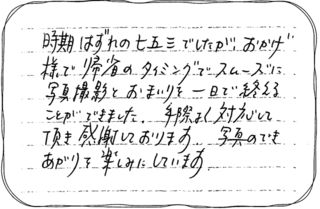 時期はずれの七五三でしたが、おかげ
様で帰省のタイミングでスムーズに
写真撮影とおまいりを一日で終える
ことができました。手際よく対応して
頂き感謝しております。写真のでき
あがりを楽しみにしています。